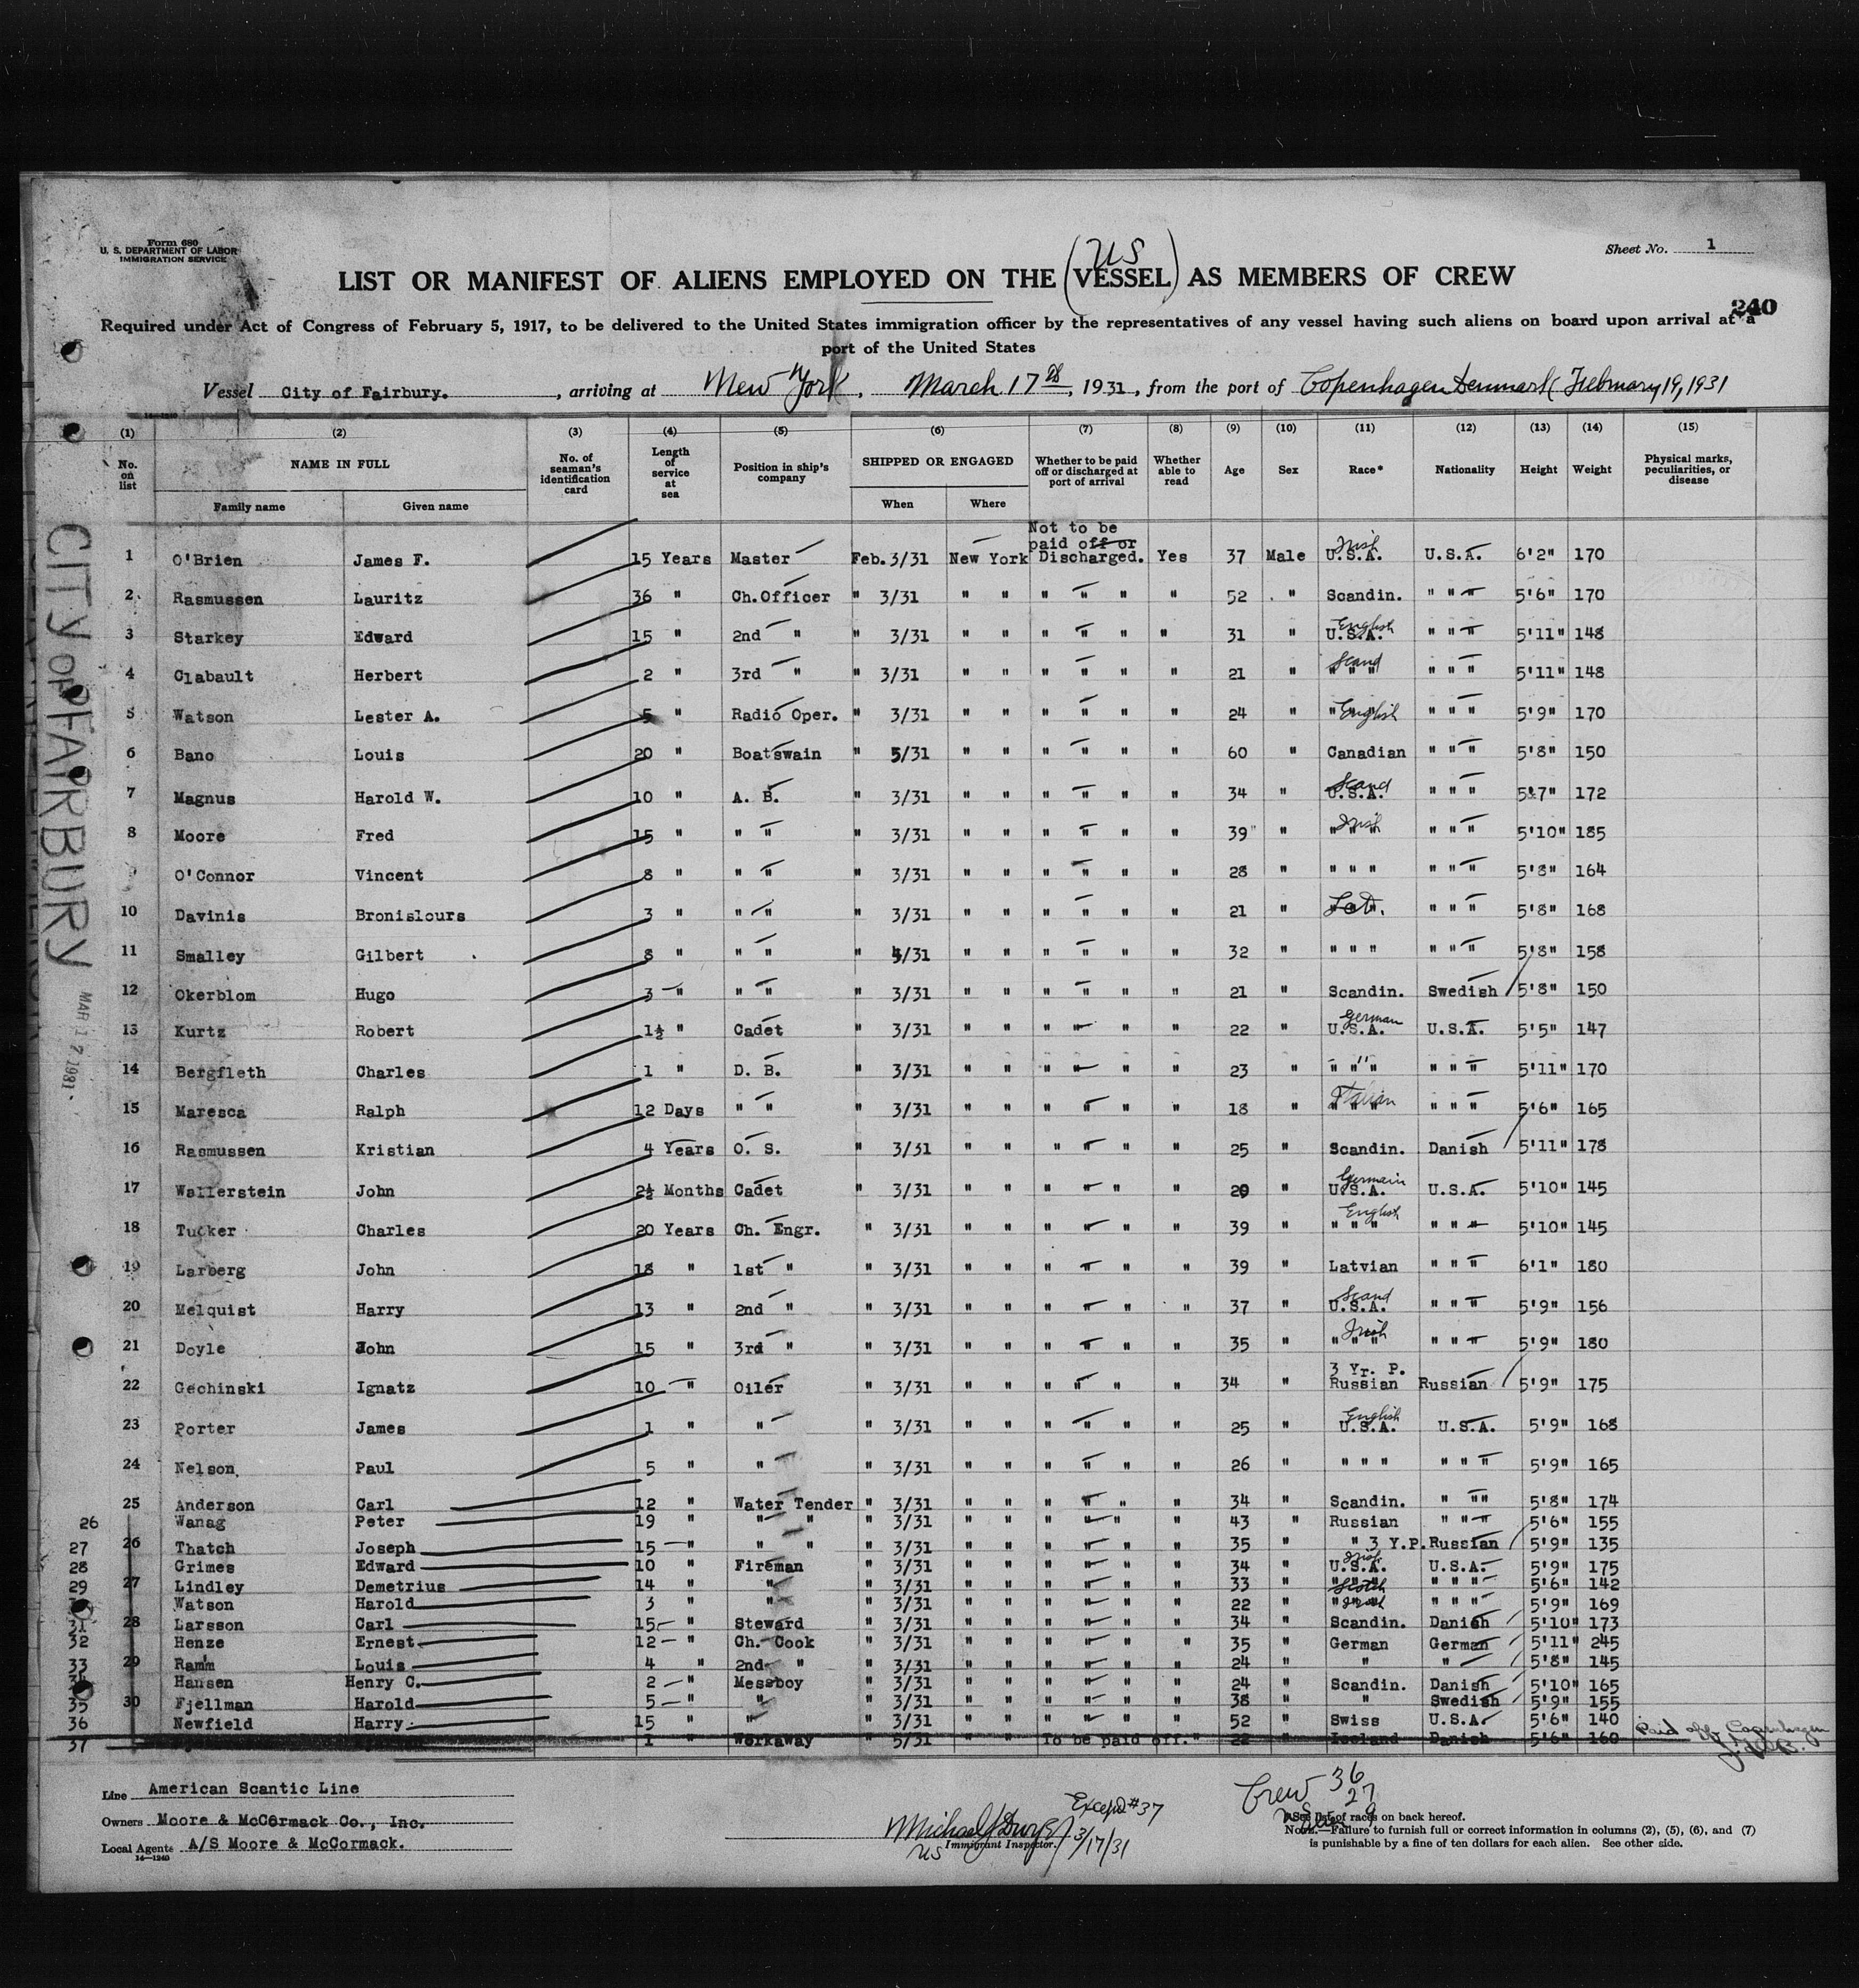 Form 680
U. S. DEPARTMENT OF LABOR
IMMIGRATION SERVICE
Sheet No. 1
US
LIST OR MANIFEST OF ALIENS EMPLOYED ON THE (VESSEL) AS MEMBERS OF CREW
240
Required under Act of Congress of February 5, 1917, to be delivered to the United States immigration officer by the representatives of any vessel having such aliens on board upon arrival at a
port of the United States
Vessel City of Fairbury. , arriving at New York , March 17th, 1931, from the port of Copenhagen Denmark February 19, 1931
14-1240
(1) (2) (3) (4) (5) (6) (7) (8) (9) (10) (11) (12) (13) (14) (15)
No. on list NAME IN FULL Family name Given name No. of seaman's identification card Length of service at sea Position in ship's company SHIPPED OR ENGAGED When Where Whether to be paid off or discharged at port of arrival Whether able to read Age Sex Race* Nationality Height Weight Physical marks, peculiarities, or disease
1 O'Brien James F. 15 Years Master Feb. 3/31 New York Not to be paid off or Discharged. Yes 37 Male U.S.A. Irish U.S.A. 6'2" 170
2 Rasmussen Lauritz 36 " Ch.Officer " 3/31 " " " " " " 52 " Scandin. " " " 5'6" 170
3 Starkey Edward 15 " 2nd " " 3/31 " " " " " " 31 " U.S.A. English " " " 5'11" 148
4 Clabault Herbert 2 " 3rd " " 3/31 " " " " " " 21 " " " " Scand " " " 5'11" 148
5 Watson Lester A. 5 " Radio Oper. " 3/31 " " " " " " 24 " " English " " " 5'9" 170
6 Bano Louis 20 " Boatswain " 5/31 " " " " " " 60 " Canadian " " " 5'8" 150
7 Magnus Harold W. 10 " A. B. " 3/31 " " " " " " 34 " U.S.A. Scand " " " 5'7" 172
8 Moore Fred 15 " " " " 3/31 " " " " " " 39 " " " " Irish " " " 5'10" 185
O'Connor Vincent 8 " " " " 3/31 " " " " " " 28 " " " " " " " 5'8" 164
10 Davinis Bronislours 3 " " " " 3/31 " " " " " " 21 " " " " 5'8" 168
11 Smalley Gilbert 8 " " " " 4/31 " " " " " " 32 " " " " " " " 5'8" 158
12 Okerblom Hugo 3 " " " " 3/31 " " " " " " 21 " Scandin. Swedish 5'8" 150
13 Kurtz Robert 1½ " Cadet " 3/31 " " " " " " 22 " U.S.A. German U.S.A. 5'5" 147
14 Bergfleth Charles 1 " D. B. " 3/31 " " " " " " 23 " " " " " " " 5'11" 170
15 Maresca Ralph 12 Days " " " 3/31 " " " " " " 18 " " " " Italian " " " 5'6" 165
16 Rasmussen Kristian 4 Years O. S. " 3/31 " " " " " " 25 " Scandin. Danish 5'11" 178
17 Wallerstein John 2½ Months Cadet " 3/31 " " " " " " 20 " U.S.A. Germain U.S.A. 5'10" 145
18 Tucker Charles 20 Years Ch. Engr. " 3/31 " " " " " " 39 " " " " English " " " 5'10" 145
19 Larberg John 18 " 1st " " 3/31 " " " " " " 39 " Latvian " " " 6'1" 180
20 Melquist Harry 13 " 2nd " " 3/31 " " " " " " 37 " U.S.A. Scand " " " 5'9" 156
21 Doyle John 15 " 3rd " " 3/31 " " " " " " 35 " " " " Irish " " " 5'9" 180
22 Gechinski Ignatz 10 " Oiler " 3/31 " " " " " 34 " 3 Yr. P. Russian Russian 5'9" 175
23 Porter James 1 " " " 3/31 " " " " " " 25 " U.S.A. English U.S.A. 5'9" 168
24 Nelson. Paul 5 " " " 3/31 " " " " " " 26 " " " " " " " 5'9" 165
25 Anderson Carl 12 " Water Tender " 3/31 " " " " " " 34 " Scandin. " " " 5'8" 174
26 Wanag Peter 19 " " " " 3/31 " " " " " 43 " Russian " " " 5'6" 155
27 26 Thatch Joseph 15 " " " " 3/31 " " " " " " 35 " " 3 Y.P. Russian 5'9" 135
28 Grimes Edward 10 " Fireman " 3/31 " " " " " " 34 " U.S.A. Irish U.S.A. 5'9" 175
29 27 Lindley Demetrius 14 " " " 3/31 " " " " " " 33 " " " " Scotch " " " 5'6" 142
Watson Harold 3 " " " 3/31 " " " " " " 22 " " " " " 5'9" 169
31 28 Larsson Carl 15 " Steward " 3/31 " " " " " " 34 " Scandin. Danish 5'10" 173
32 Henze Ernest 12 " Ch. Cook " 3/31 " " " " " " 35 " German German 5'11" 245
33 29 Ramm Louis 4 " 2nd " " 3/31 " " " " " " 24 " " " 5'8" 145
34 Hansen Henry C. 2 " Messboy " 3/31 " " " " " " 24 " Scandin. Danish 5'10" 165
35 30 Fjellman Harold 5 " " " 3/31 " " " " " " 38 " " Swedish 5'9" 155
36 Newfield Harry 15 " " " 3/31 " " " " " " 52 " Swiss U.S.A. 5'6" 140
37 1 " Workaway " 5/31 " " To be paid off. " 22 " Iceland Danish 5'6" 160 Paid off Copenhagen
CITY OF FAIRBURY
MAR 17 1931
Line American Scantic Line
Owners Moore & McCormack Co., Inc.
Local Agents A/S Moore & McCormack.
14-1240
Except #37
Michael J Dwyer 3/17/31
US Immigrant Inspector.
Crew 36
27
9
*See list of races on back hereof.
NOTE.—Failure to furnish full or correct information in columns (2), (5), (6), and (7)
is punishable by a fine of ten dollars for each alien. See other side.